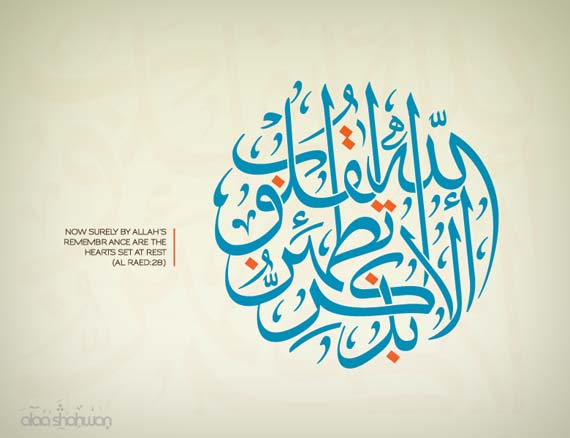 ألا بذكر الله تطمئن القلوب
NOW SURELY BY ALLAH'S
REMEMBRANCE ARE THE
HEARTS SET AT REST
(AL RAED:28)
alaa shahwan